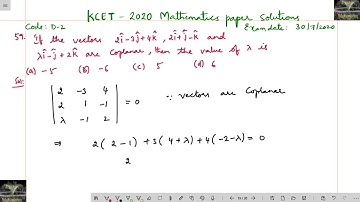 KCET - 2020 Mathematics paper solutions
Code: D-2
Exam date: 30/7/2020
59. If the vectors 2î-3ĵ+4k̂, 2î+ĵ-k̂ and
λî-ĵ+2k̂ are coplanar, then the value of λ is
(a) -5 (b) -6 (c) 5 (d) 6
Sol:
| 2 -3 4 |
| 2 1 -1 | = 0 ∵ vectors are Coplanar
| λ -1 2 |
⇒ 2(2-1) + 3(4+λ) + 4(-2-λ) = 0
2